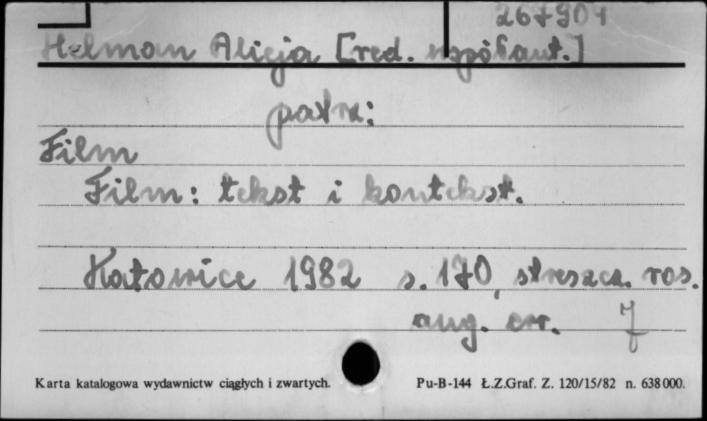 267904
Helman Alicja [red. współaut.]
patrz:
Film
Film: tekst i kontekst.
Katowice 1982 s. 170, streszcz. ros.
ang. err. 7
Karta katalogowa wydawnictw ciągłych i zwartych. Pu-B-144 Ł.Z.Graf. Z. 120/15/82 n. 638000.